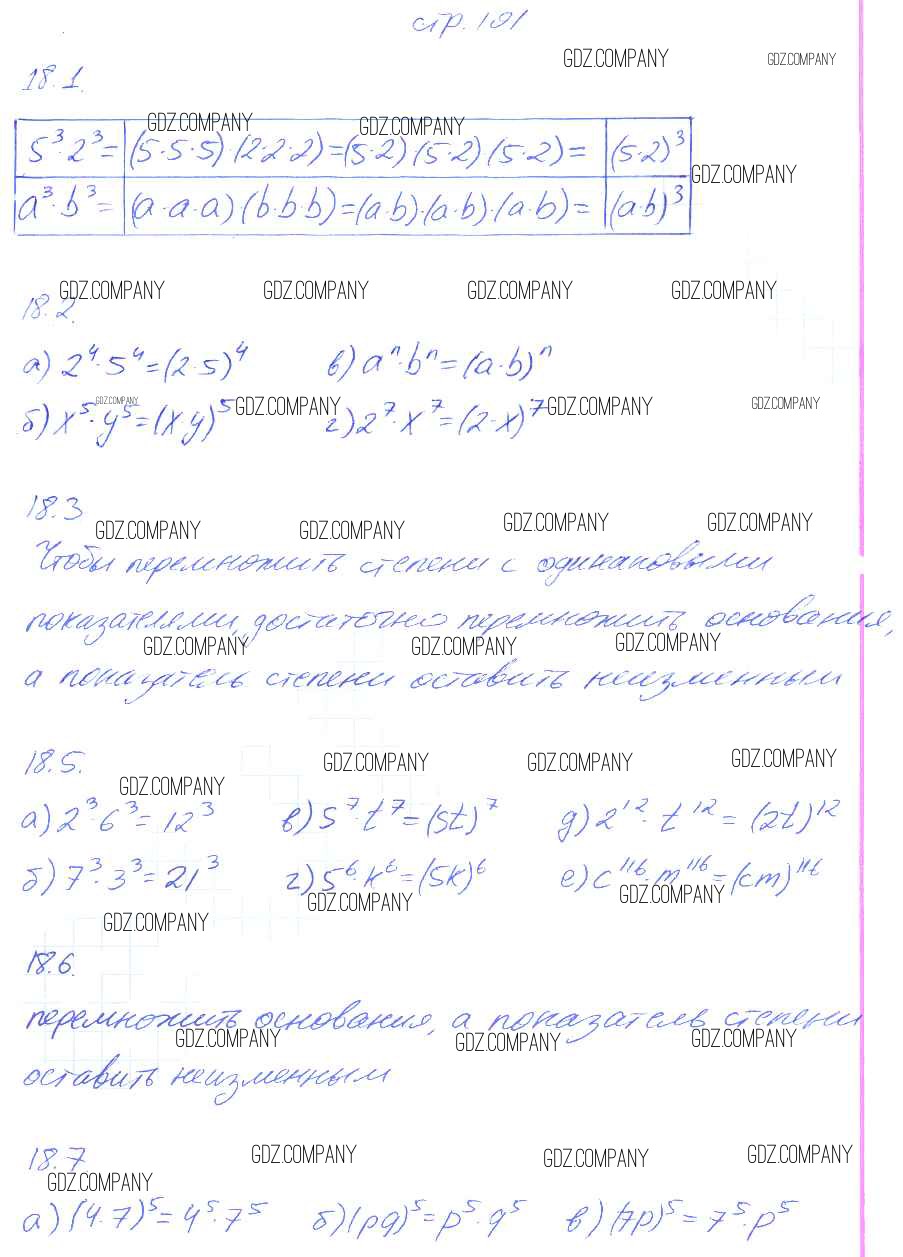 стр. 101
GDZ.COMPANY GDZ.COMPANY
18.1.
GDZ.COMPANY GDZ.COMPANY
5³·2³= (5·5·5)·(2·2·2)=(5·2)(5·2)(5·2)= (5·2)³
GDZ.COMPANY
a³·b³= (a·a·a)(b·b·b)=(a·b)·(a·b)·(a·b)= (a·b)³
GDZ.COMPANY GDZ.COMPANY GDZ.COMPANY GDZ.COMPANY
18.2.
а) 2⁴·5⁴=(2·5)⁴ в) aⁿ·bⁿ=(a·b)ⁿ
GDZ.COMPANY GDZ.COMPANY GDZ.COMPANY GDZ.COMPANY
б) x⁵·y⁵=(xy)⁵ г) 2⁷·x⁷=(2·x)⁷
18.3
GDZ.COMPANY GDZ.COMPANY GDZ.COMPANY GDZ.COMPANY
Чтобы перемножить степени с одинаковыми
показателями, достаточно перемножить основания,
GDZ.COMPANY GDZ.COMPANY GDZ.COMPANY
а показатель степени оставить неизменным
18.5.
GDZ.COMPANY GDZ.COMPANY GDZ.COMPANY GDZ.COMPANY
а) 2³·6³=12³ в) 5⁷·t⁷=(5t)⁷ д) 2¹²·t¹²=(2t)¹²
б) 7³·3³=21³ г) 5⁶·k⁶=(5k)⁶ е) c¹¹⁶·m¹¹⁶=(cm)¹¹⁶
GDZ.COMPANY GDZ.COMPANY GDZ.COMPANY
18.6.
перемножить основания, а показатель степени
GDZ.COMPANY GDZ.COMPANY GDZ.COMPANY
оставить неизменным
18.7
GDZ.COMPANY GDZ.COMPANY GDZ.COMPANY GDZ.COMPANY
а) (4·7)⁵=4⁵·7⁵ б) (pq)⁵=p⁵·q⁵ в) (7p)⁵=7⁵·p⁵